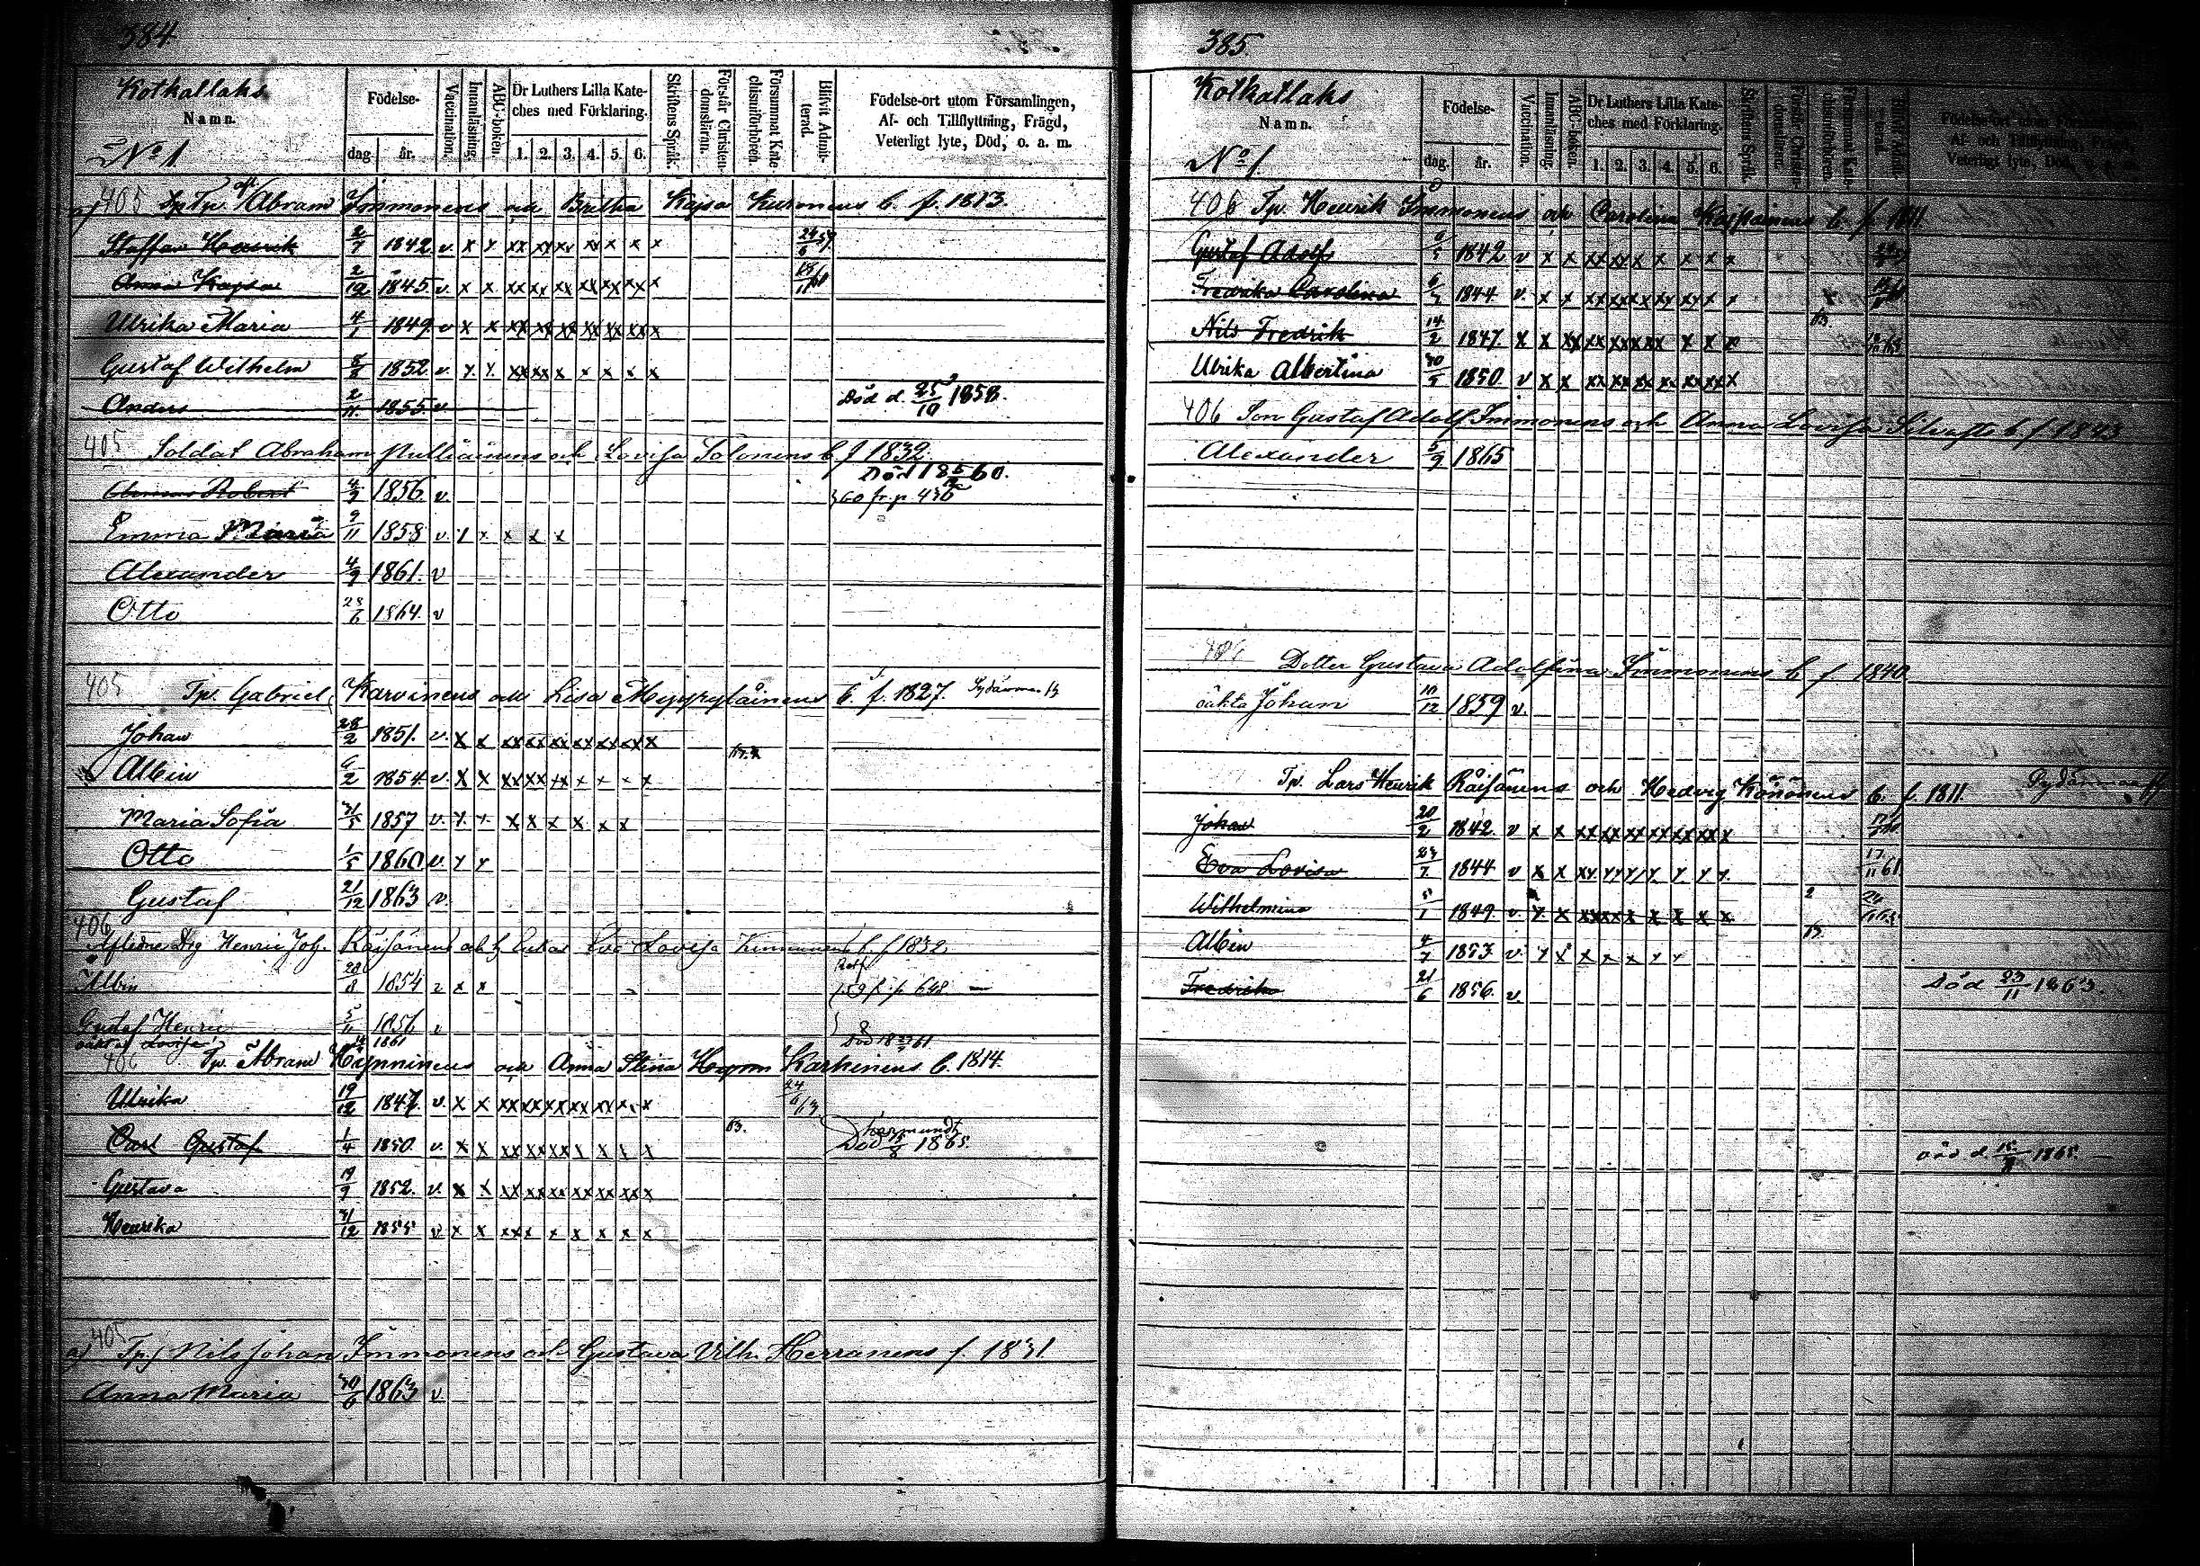 384
Kotkallaks
Namn.
No 1
Födelse-
dag
år.
Vaccination.
Innanläsning.
ABC-boken.
Dr Luthers Lilla Kate-
ches med Förklaring.
1. 2. 3. 4. 5. 6.
Skriftens Språk.
Förstår Christen-
domsläran.
Försummat Kate-
chismiförhören.
Blifvit Admit-
terad.
Födelse-ort utom Församlingen,
Af- och Tillflyttning, Frägd,
Veterligt lyte, Död, o. a. m.
405 Tp. Abram Immonens och Britha Kajsa Kuronens b. f. 1813.
Staffan Henrik 2/7 1842 v. x x xx xx xx xx x x x 24/6 59.
Anna Kajsa 2/12 1845 v. x x xx xx xx xx xx xx x
Ulrika Maria 4/1 1849 v x x xx xx xx xx xx xx x
Gustaf Wilhelm 8/8 1852 v. x x xx xx x x x x x
Anders 2/11 1855 v. Död d. 25/10 1858.
405 Soldat Abraham och Lovisa Tolonens b f 1832.
Robert 4/3 1856 v. Död 18 60.
60 fr. p. 436
Emma Maria 9/11 1858 v. x x x x x
Alexander 4/9 1861 v
Otto 28/6 1864 v
405 Tp. Gabriel Karvinens och Lisa Myyryläinens b. f. 1827.
Johan 28/2 1851. v. x x xx xx xx xx xx xx x
Albin 6/2 1854 v. x x xx xx xx x x x x
Maria Sofia 31/5 1857 v. x x x x x x x x
Otto 1/5 1860 v. x x
Gustaf 21/12 1863 v.
406
Aflidne Drg Henric Joh. Räisänens och Enkas Eva Lovisa Kinnunens b. f 1832
Albin 28/8 1854 v x x 59 f. p 648 —
Gustaf Henric 5/11 1856 v
oäkta Lovisa 1861 Död 18 61
406 Tp. Abram Hynninens och Anna Stina Karhinens b. 1814.
Ulrika 19/12 1847 v. x x xx xx xx xx xx x x 24/6 63
Carl Gustaf 1/4 1850. v. x x xx xx xx x x x x 63. Död 15/8 1865
Gustava 19/9 1852. v. x x xx xx xx xx xx xx x
Henrika 31/12 1855 v x x xx x x x x x x
405
Tp. Nils Johan Immonens och Gustava Vilh. Herranens f. 1831
Anna Maria 30/6 1863 v.
385.
Kotkatlaks
Namn.
No 1.
Födelse-
dag.
år.
Vaccination.
Innanläsning.
ABC-boken.
Dr Luthers Lilla Kate-
ches med Förklaring.
1. 2. 3. 4. 5. 6.
Skriftens Språk.
Födelse-ort utom Församlingen,
Af- och Tillflyttning, Frägd,
Veterligt lyte, Död, o. a. m.
406 Tp. Henrik Immonens och Carolina b. f. 1811.
Gustaf Adolf 1842 v x x xx xx x x x x x
Fredrika Carolina 6/7 1844 v. x x xx xx xx xx xx x x
Nils Fredrik 14/2 1847. x x xx xx xx xx x x x x 63.
Ulrika Albertina 30/5 1850. v x x xx xx xx xx xx xx x
406 Son Gustaf Adolf Immonens och Anna Lovisa b f 1843
Alexander 5/9 1865
406 Dotter Gustava Adolfina Immonens b f. 1840.
oäkta Johan 10/12 1859 v.
Tp. Lars Henrik Räisänens och Hedvig Könönens b. f. 1811.
Johan 20/2 1842 v x x xx xx xx xx xx xx x
Eva Lovisa 23/7 1844 v x x xx xx xx x x x x 17/11 61.
Wilhelmina 5/1 1849 v. x x xx xx x x x x x
Albin 4/7 1853 v. x x x x x x x
Fredrik 21/6 1856. v Död 23/11 1863.
Död d. 15/8 1865 —